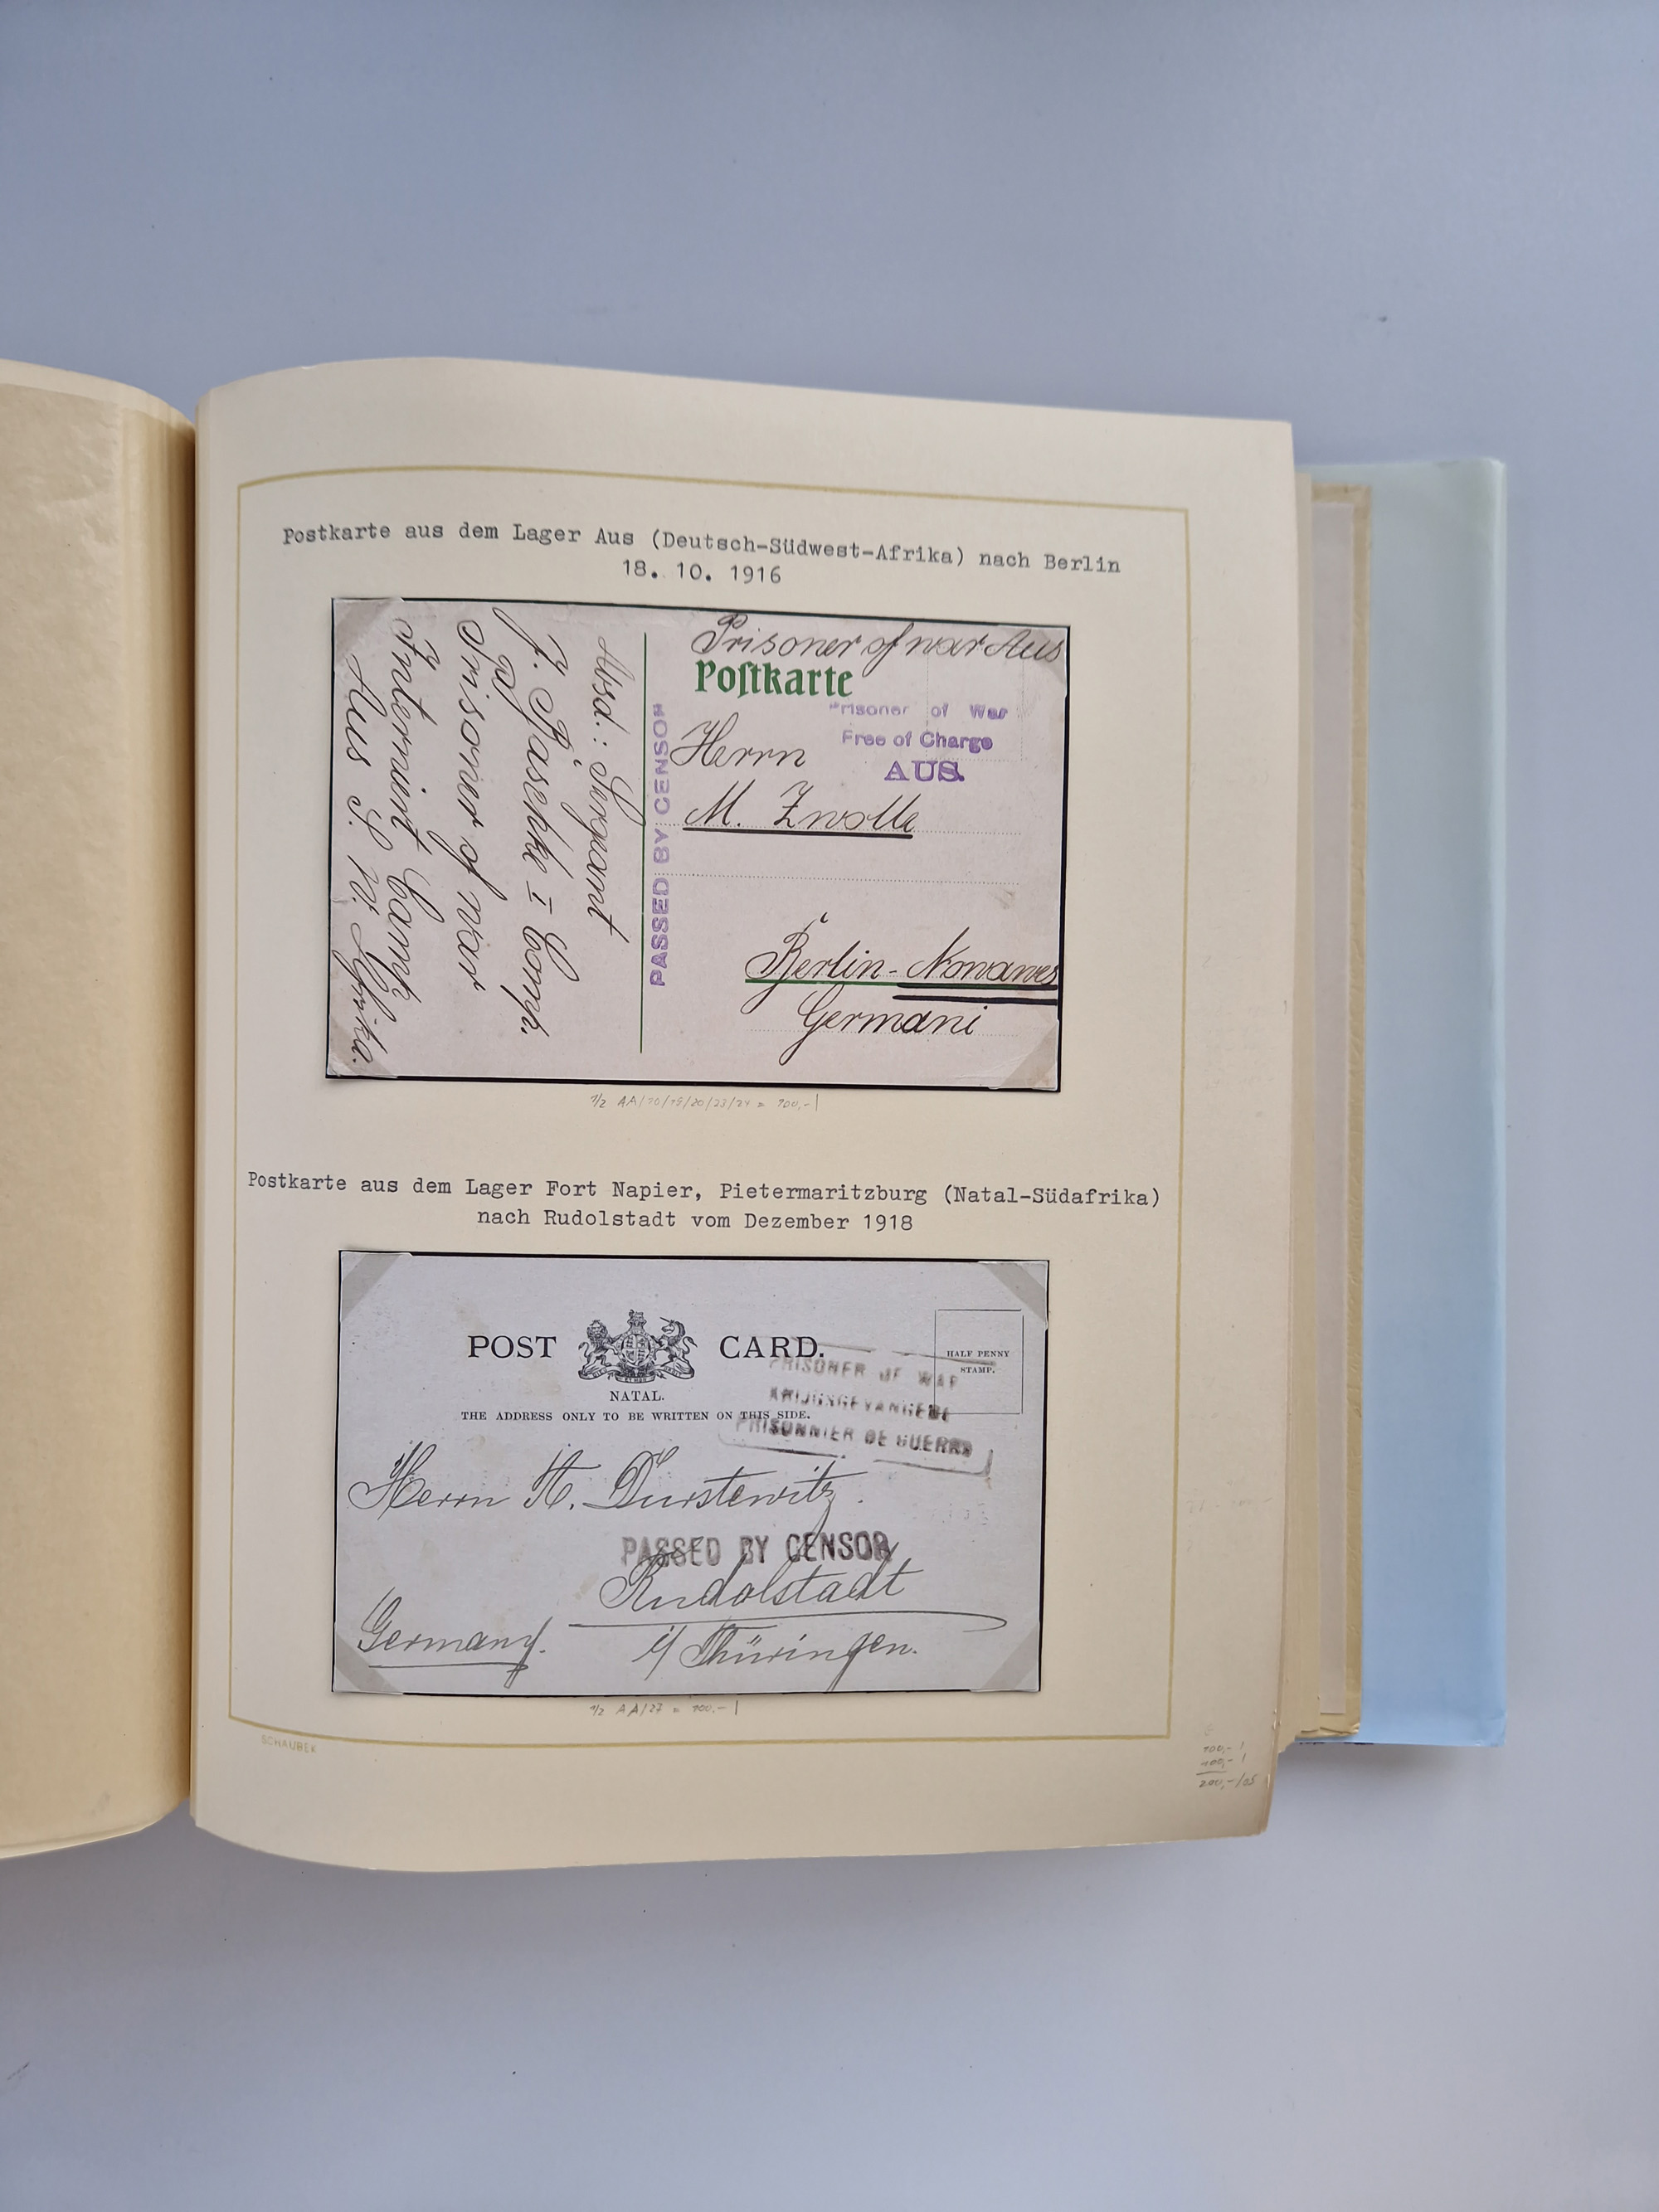 Postkarte aus dem Lager Aus (Deutsch-Südwest-Afrika) nach Berlin
18. 10. 1916
Prisoner of war Aus
Postkarte
Prisoner of War
Free of Charge
AUS.
Herrn
M. Zwolle
Berlin-Nowawes
Germani
PASSED BY CENSOR
Absd.: Sergeant
J. Paschke I Comp.
Prisoner of War
Interniert Camp
Aus S. W. Afrika.
1/2 AA/10/19/20/23/24 = 100,-
Postkarte aus dem Lager Fort Napier, Pietermaritzburg (Natal-Südafrika)
nach Rudolstadt vom Dezember 1918
POST CARD.
NATAL.
THE ADDRESS ONLY TO BE WRITTEN ON THIS SIDE.
HALF PENNY
STAMP.
PRISONER OF WAR
KRIJGSGEVANGENE
PRISONNIER DE GUERRE
Herrn H. Durstewitz.
PASSED BY CENSOR
Rudolstadt
Germany. i/ Thüringen.
1/2 AA/27 = 100,-
SCHAUBEK
100,-
100,-
200,-/05